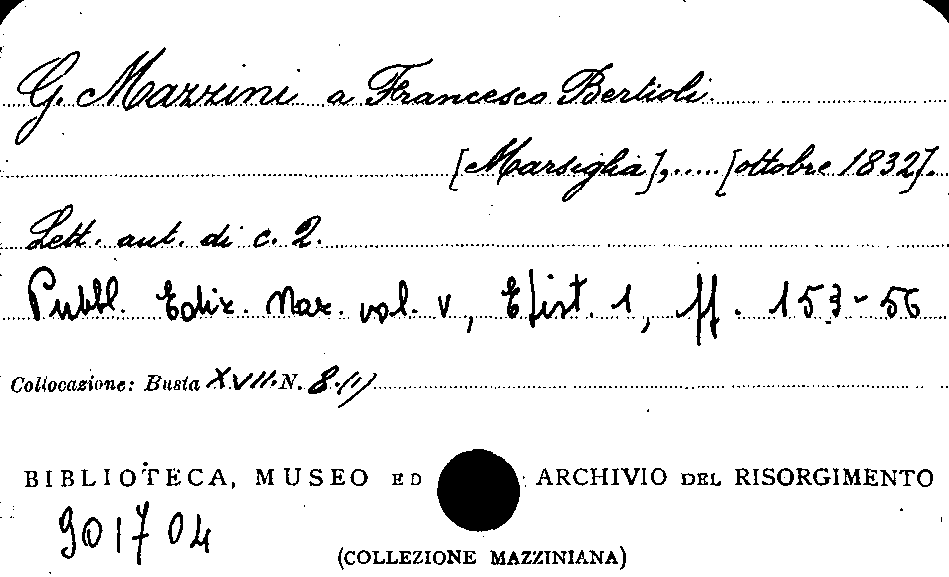 G. Mazzini a Francesco Bertioli.
[Marsiglia],..... [ottobre 1832].
Lett. aut. di c. 2.
Pubbl. Ediz. Naz. vol. V, Epist. 1, pp. 153-56
Collocazione: Busta XVII. N. 8.(1)
BIBLIOTECA, MUSEO ED ARCHIVIO DEL RISORGIMENTO
901704
(COLLEZIONE MAZZINIANA)